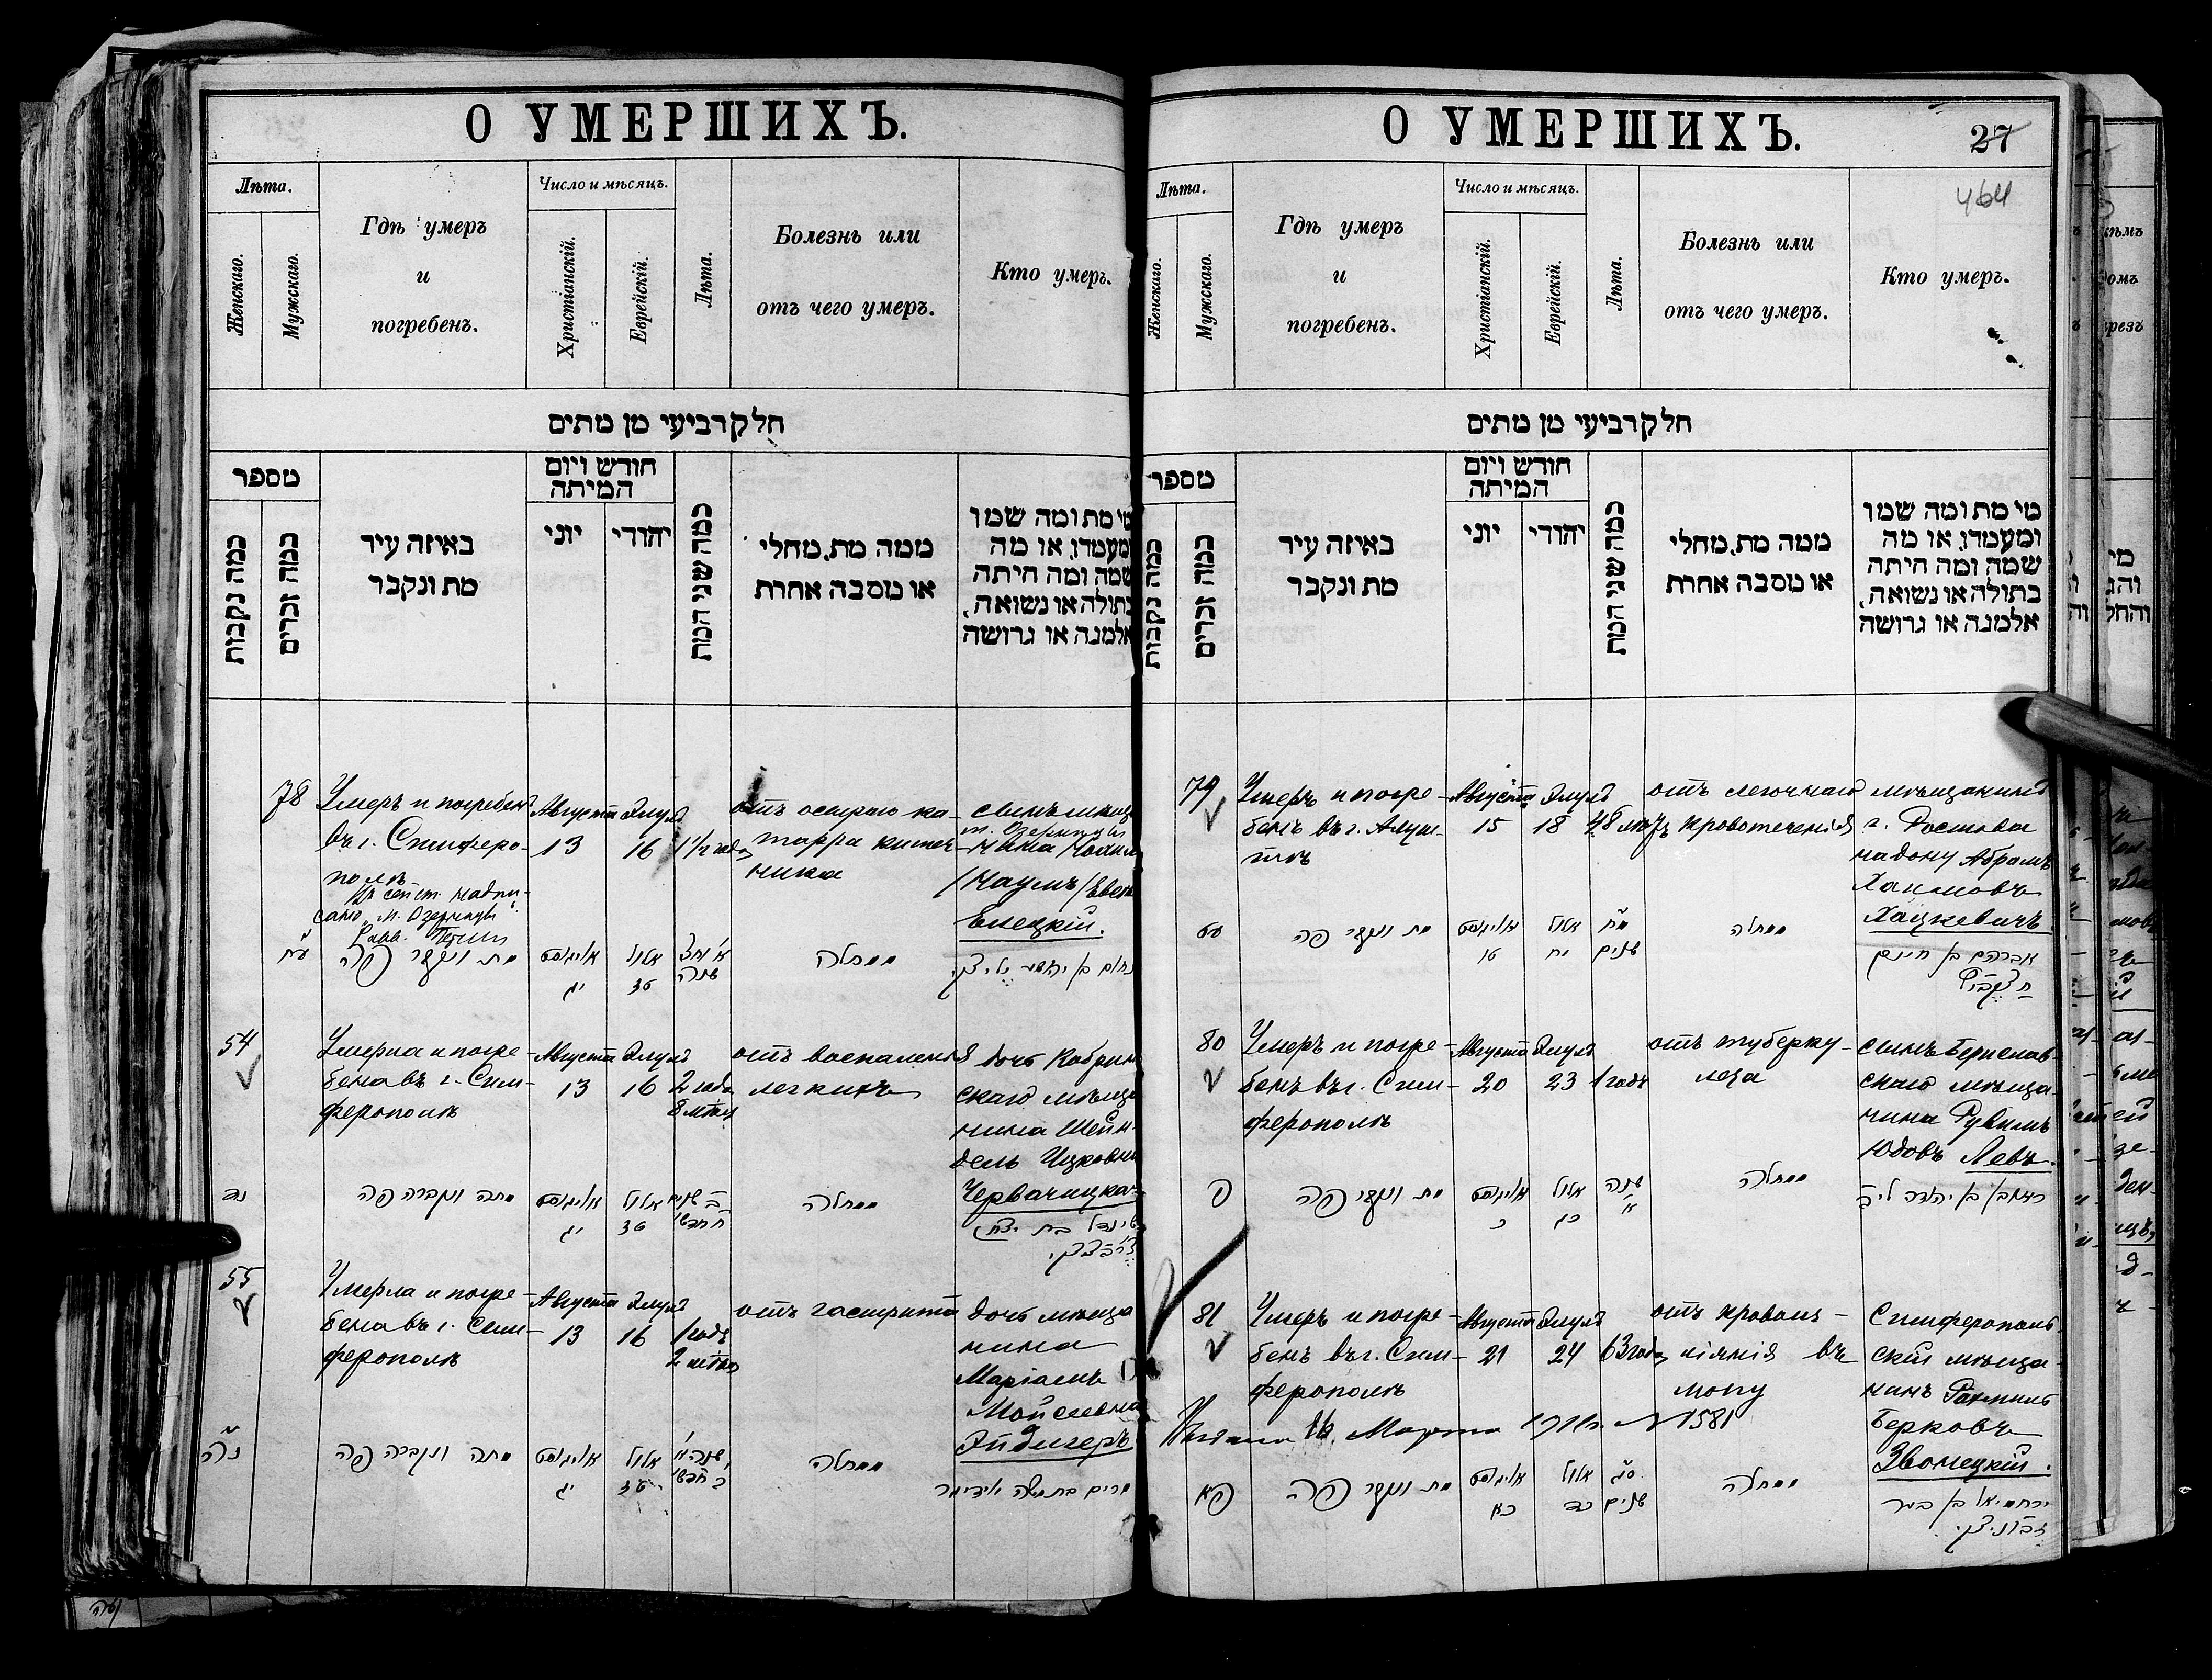 О УМЕРШИХЪ.
Лѣта.
Женскаго.
Мужскаго.
Гдѣ умеръ
и
погребенъ.
Число и мѣсяцъ.
Христіанскій.
Еврейскій.
Лѣта.
Болезнь или
отъ чего умеръ.
Кто умеръ.
חלק רביעי מן מתים
מספר
כמה נקבות
כמה זכרים
באיזה עיר
מת ונקבר
חודש ויום
המיתה
יוני
יהודי
כמה שני המת
ממה מת, מחלי
או מסבה אחרת
מי מת ומה שמו
ומעמדו, או מה
שמה ומה היתה
בתולה או נשואה,
אלמנה או גרושה
78
Умеръ и погребенъ
въ г. Симферо-
полѣ
Августа
13
Элулъ
16
1 1/2 года
отъ остраго ка-
тарра кишеч-
ника
Елецкій.
עח
מת ונקבר פה
אויגוסט
יג
אלול
טז
שנה
ממחלה
54
Умерла и погре-
бена въ г. Сим-
ферополѣ
Августа
13
Элулъ
16
2 года
8 мѣсяц
отъ воспаленія
легкихъ
дочь Кобрин
скаго мѣща
нина Шейн-
дель Ицковна
Червачицкая
נד
מתה ונקברה פה
אויגוסט
יג
אלול
טז
ממחלה
55
Умерла и погре-
бена въ г. Сим-
ферополѣ
Августа
13
Элулъ
16
1 годъ
2 мѣсяц
отъ гастрита
дочь мѣща
нина
Маріамъ
Мойсеевна
Эйдигеръ
נה
מתה ונקברה פה
אויגוסט
יג
אלול
טז
ממחלה
מרים בת משה אידיגער
О УМЕРШИХЪ.
27
464
Лѣта.
Женскаго.
Мужскаго.
Гдѣ умеръ
и
погребенъ.
Число и мѣсяцъ.
Христіанскій.
Еврейскій.
Лѣта.
Болезнь или
отъ чего умеръ.
Кто умеръ.
חלק רביעי מן מתים
מספר
כמה נקבות
כמה זכרים
באיזה עיר
מת ונקבר
חודש ויום
המיתה
יוני
יהודי
כמה שני המת
ממה מת, מחלי
או מסבה אחרת
מי מת ומה שמו
ומעמדו, או מה
שמה ומה היתה
בתולה או נשואה,
אלמנה או גרושה
79
Умеръ и погре-
бенъ въ г. Алуш-
тѣ
Августа
15
Элулъ
18
48 лѣтъ
отъ легочнаго
кровотеченія
мѣщанинъ
г. Ростова
на дону Абрамъ
Хаимовъ
Хацкевичъ
עט
מת ונקבר פה
אויגוסט
טו
אלול
יח
מח
שנים
ממחלה
אברהם בן חיים
80
Умеръ и погре-
бенъ въ г. Сим-
ферополѣ
Августа
20
Элулъ
23
1 годъ
отъ туберку-
леза
сынъ Бериславъ-
скаго мѣща-
нина Рувимъ
Юдовъ Левъ.
פ
מת ונקבר פה
אויגוסט
כ
אלול
כג
שנה
א
ממחלה
ראובן בן יהודה ליב
81
Умеръ и погре-
бенъ въ г. Сим-
ферополѣ
Августа
21
Элулъ
24
63 года
отъ кровоиз-
ліянія въ
мозгу
Симферополь
скій мѣща-
нинъ Рахмиль
Берковъ
Звонецкій.
16 Марта 1911 г. № 1581
פא
מת ונקבר פה
אויגוסט
כא
אלול
כד
סג
שנים
ממחלה
ירחמיאל בן בער